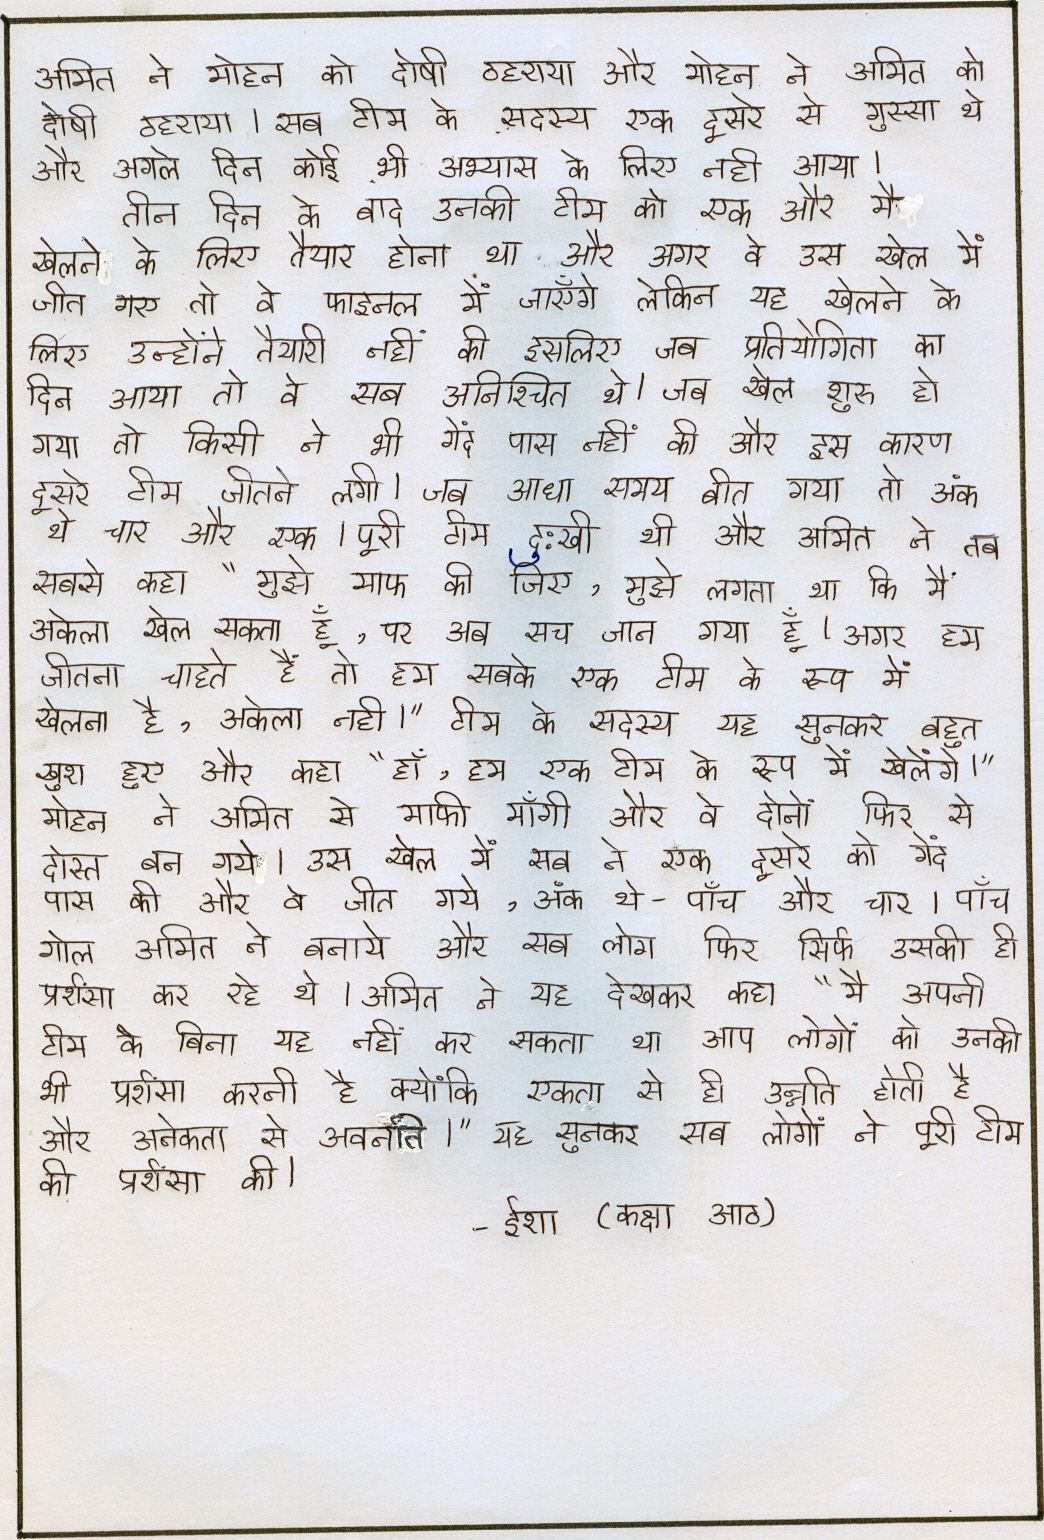 अमित ने मोहन को दोषी ठहराया और मोहन ने अमित को
दोषी ठहराया। सब टीम के सदस्य एक दूसरे से गुस्सा थे
और अगले दिन कोई भी अभ्यास के लिए नही आया।
तीन दिन के बाद उनकी टीम को एक और मै
खेलने के लिए तैयार होना था और अगर वे उस खेल में
जीत गए तो वे फाइनल में जाएँगे लेकिन यह खेलने के
लिए उन्होंने तैयारी नहीं की इसलिए जब प्रतियोगिता का
दिन आया तो वे सब अनिश्चित थे। जब खेल शुरु हो
गया तो किसी ने भी गेंद पास नहीं की और इस कारण
दूसरे टीम जीतने लगी। जब आधा समय बीत गया तो अंक
थे चार और एक। पूरी टीम दुःखी थी और अमित ने तब
सबसे कहा "मुझे माफ की जिए, मुझे लगता था कि मैं
अकेला खेल सकता हूँ, पर अब सच जान गया हूँ। अगर हम
जीतना चाहते हैं तो हम सबके एक टीम के रूप में
खेलना है, अकेला नही।" टीम के सदस्य यह सुनकर बहुत
खुश हुए और कहा "हाँ, हम एक टीम के रूप में खेलेंगे।"
मोहन ने अमित से माफी माँगी और वे दोनों फिर से
दोस्त बन गये। उस खेल में सब ने एक दूसरे को गेंद
पास की और वे जीत गये, अंक थे - पाँच और चार। पाँच
गोल अमित ने बनाये और सब लोग फिर सिर्फ उसकी ही
प्रर्शसा कर रहे थे। अमित ने यह देखकर कहा "मै अपनी
टीम के बिना यह नहीं कर सकता था आप लोगों को उनकी
भी प्रर्शसा करनी है क्योंकि एकता से ही उन्नति होती है
और अनेकता से अवनति।" यह सुनकर सब लोगों ने पूरी टीम
की प्रर्शसा की।
- ईशा (कक्षा आठ)